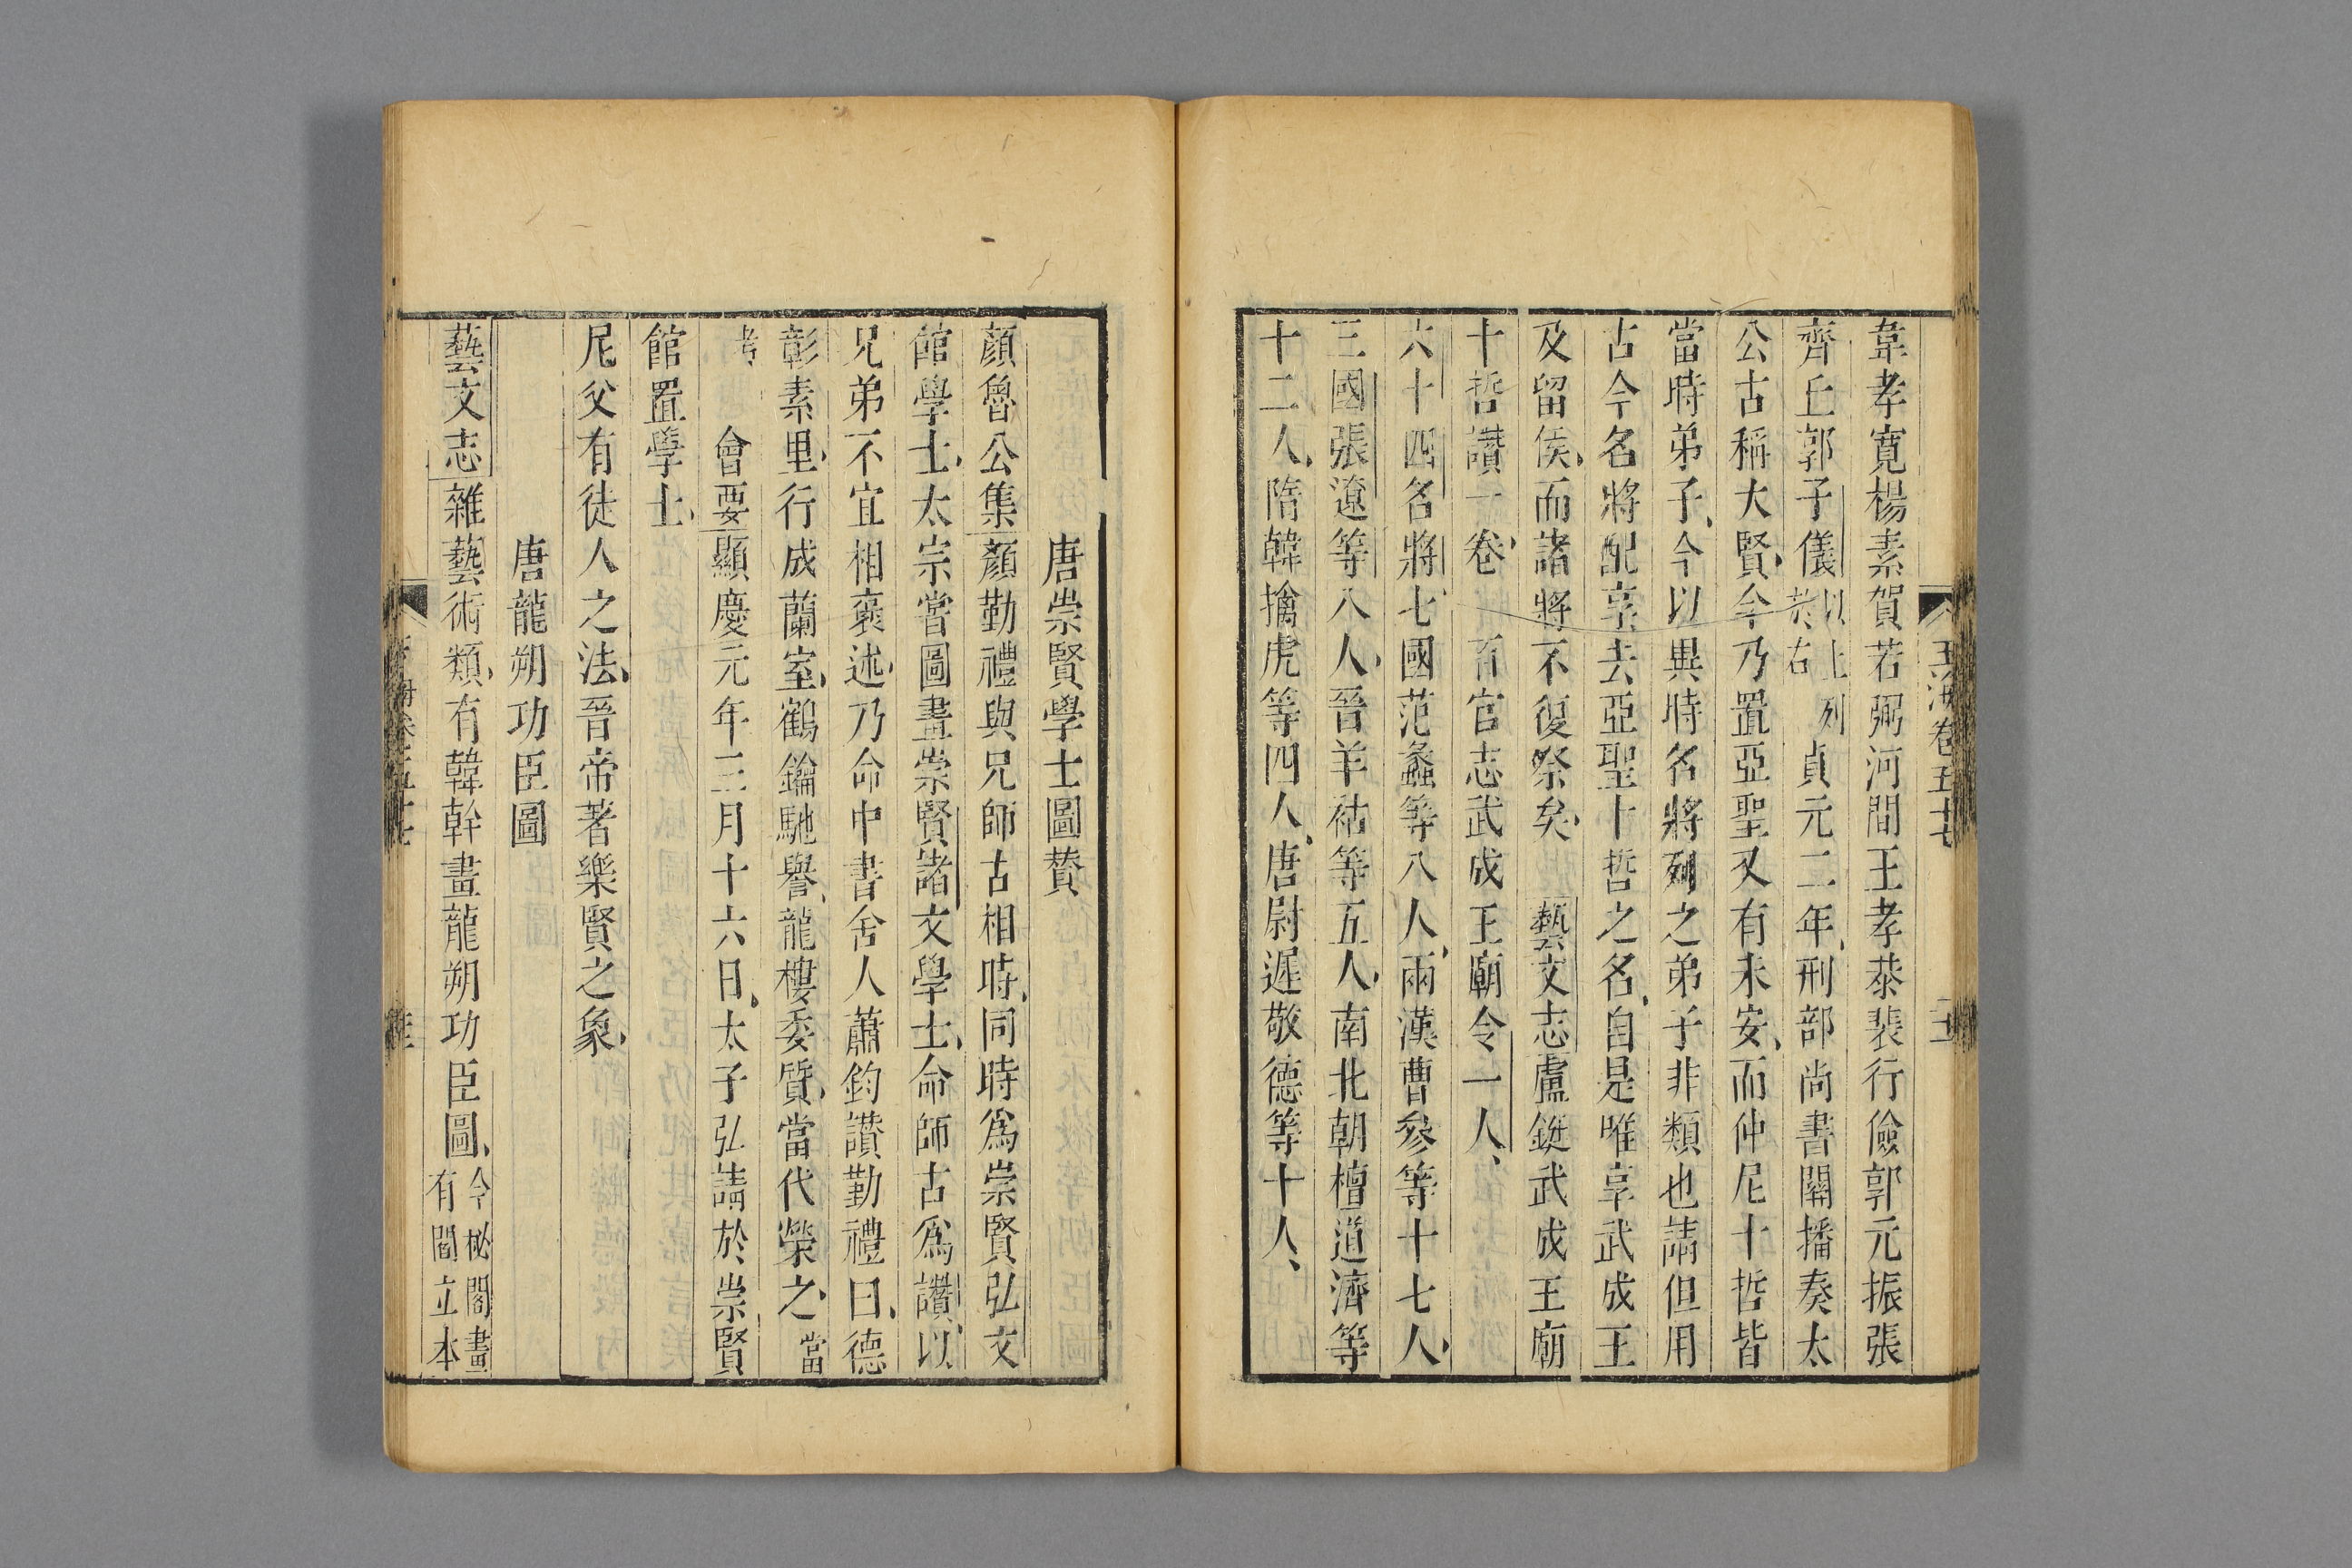 韋孝寬楊素賀若弼河間王孝恭裴行儉郭元振張
齊丘郭子儀以上列於右貞元二年刑部尚書關播奏太
公古稱大賢今乃置亞聖又有未安而仲尼十哲皆
當時弟子今以異時名將列之弟子非類也請但用
古今名將配享去亞聖十哲之名自是唯享武成王
及留侯而諸將不復祭矣 藝文志盧鋌武成王廟
十哲讚一卷 百官志武成王廟令一人
六十四名將七國范蠡等八人兩漢曹參等十七人
三國張遼等八人晉羊祜等五人南北朝檀道濟等
十二人隋韓擒虎等四人唐尉遲敬德等十人
玉海卷五十七
唐崇賢學士圖贊
顏魯公集顏勤禮與兄師古相時同時為崇賢弘文
館學士太宗嘗圖畫崇賢諸文學士命師古為讚以
兄弟不宜相褒述乃命中書舍人蕭鈞讚勤禮曰德
彰素里行成蘭室鶴鑰馳譽龍樓委質當代榮之當
考 會要顯慶元年三月十六日太子弘請於崇賢
館置學士
尼父有徒人之法晉帝著樂賢之象
唐龍朔功臣圖
藝文志雜藝術類有韓幹畫龍朔功臣圖今秘閣畫有閻立本